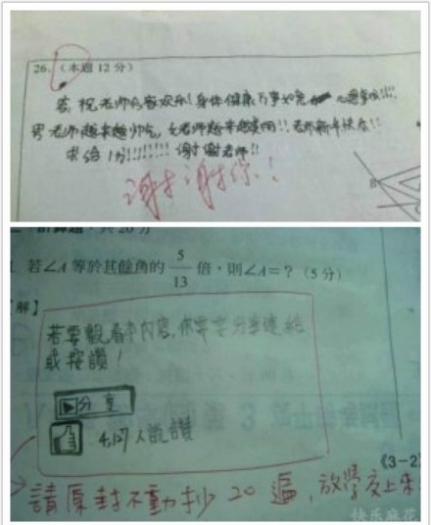 26.（本題 12 分）
答:祝老师合家欢乐!身体健康 万事如意
男老师越来越帅气,女老师越来越美丽!!老师新年快乐!!
求给 1分!!!!!!! 谢谢老师!!
谢谢你!
二 計算題，共 20 分
若∠A 等於其餘角的 5/13 倍，則∠A=？（5 分）
解】
若要觀看本內容,你需要分享連結
或按讚!
分享
人說讚
《3-2
請原封不動抄 20 遍，放學交上來
快乐麻花